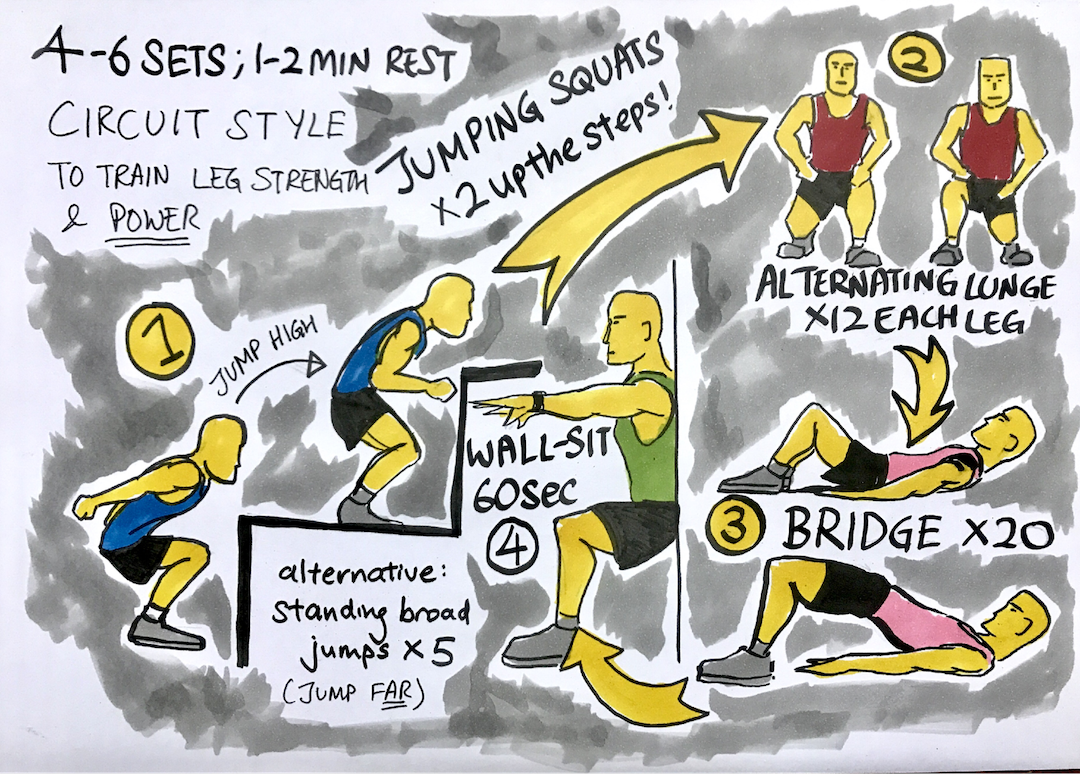 4-6 SETS; 1-2 MIN REST
CIRCUIT STYLE
TO TRAIN LEG STRENGTH
& POWER
JUMPING SQUATS
x2 up the steps!
1
JUMP HIGH
alternative:
standing broad
jumps x5
(JUMP FAR)
2
ALTERNATING LUNGE
X12 EACH LEG
3 BRIDGE X20
WALL-SIT
60sec
4